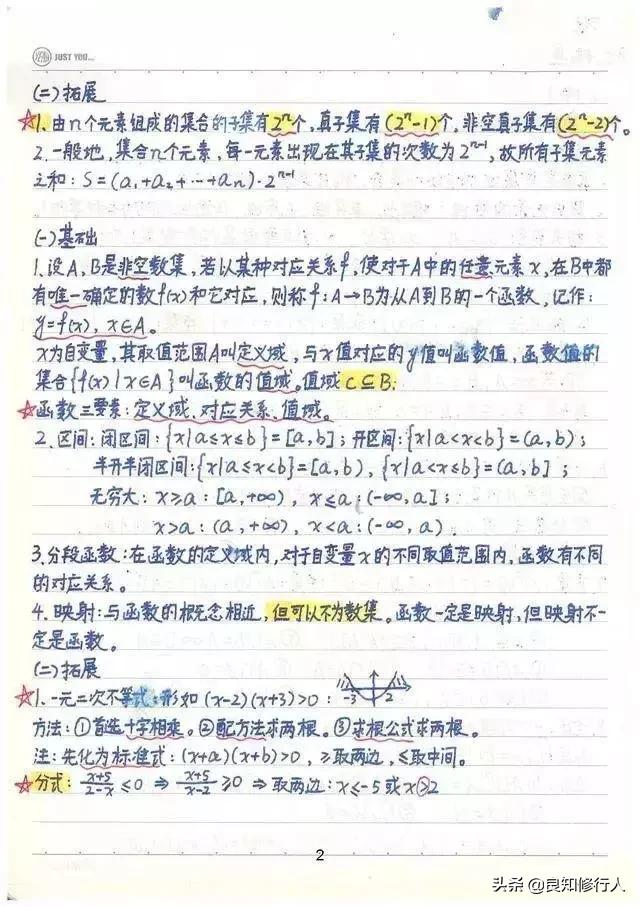 JUST YOU...
(二)拓展
☆1.由n个元素组成的集合的子集有2ⁿ个,真子集有(2ⁿ-1)个,非空真子集有(2ⁿ-2)个。
2.一般地,集合n个元素,每一元素出现在其子集的次数为2ⁿ⁻¹,故所有子集元素
之和:S=(a₁+a₂+…+aₙ)·2ⁿ⁻¹
(一)基础
1.设A,B是非空数集,若以某种对应关系f,使对于A中的任意元素x,在B中都
有唯一确定的数f(x)和它对应,则称f:A→B为从A到B的一个函数,记作:
y=f(x),x∈A。
x为自变量,其取值范围A叫定义域,与x值对应的y值叫函数值,函数值的
集合{f(x)|x∈A}叫函数的值域。值域C⊆B.
☆函数三要素:定义域、对应关系、值域。
2.区间:闭区间:{x|a≤x≤b}=[a,b];开区间:{x|a<x<b}=(a,b);
半开半闭区间:{x|a≤x<b}=[a,b),{x|a<x≤b}=(a,b];
无穷大:x≥a:[a,+∞),x≤a:(-∞,a];
x>a:(a,+∞),x<a:(-∞,a)
3.分段函数:在函数的定义域内,对于自变量x的不同取值范围内,函数有不同
的对应关系。
4.映射:与函数的概念相近,但可以不为数集。函数一定是映射,但映射不一
定是函数。
(二)拓展
☆1.一元二次不等式:形如(x-2)(x+3)>0: -3 2
方法:①首选十字相乘。②配方法求两根。③求根公式求两根。
注:先化为标准式:(x+a)(x+b)>0,≥取两边,≤取中间。
☆分式:(x+5)/(2-x)≤0⇒(x+5)/(x-2)≥0⇒取两边:x≤-5或x>2
2
头条@良知修行人